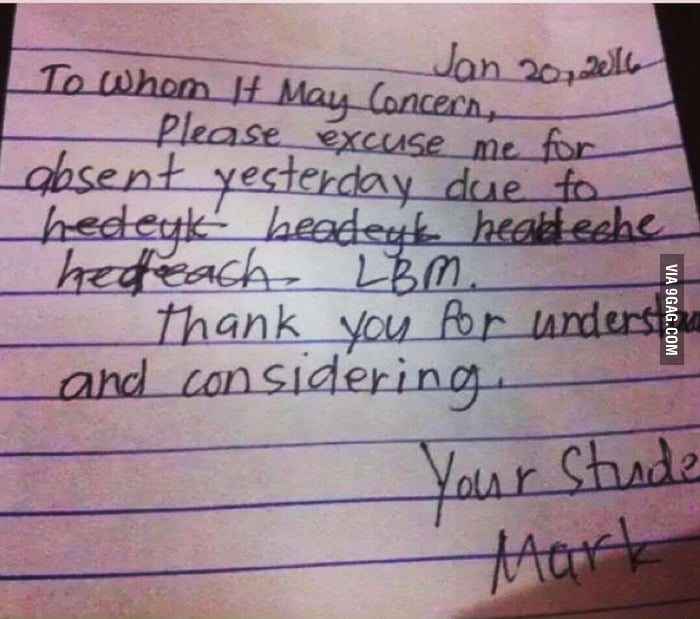 Jan 20, 2016
To Whom It May Concern,
Please excuse me for
absent yesterday due to
hedeyk headeyk headeche
hedeach LBM.
Thank you for understan
and considering.
Your Stude
Mark
VIA 9GAG.COM